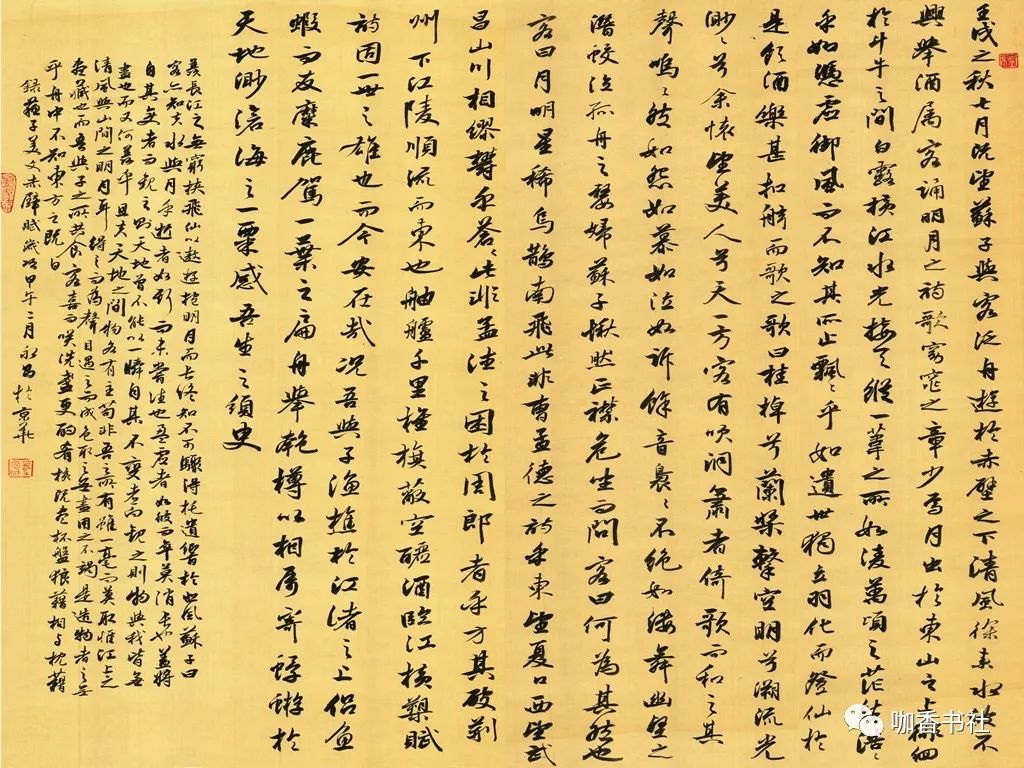 壬戌之秋七月既望蘇子與客泛舟遊於赤壁之下清風徐來水波不
興舉酒属客誦明月之詩歌窈窕之章少焉月出於東山之上徘徊
於斗牛之間白露橫江水光接天縱一葦之所如淩萬頃之茫然浩〻
乎如馮虛御風而不知其所止飄〻乎如遺世獨立羽化而登仙於
是飲酒樂甚扣舷而歌之歌曰桂棹兮蘭槳擊空明兮溯流光
渺〻兮余懷望美人兮天一方客有吹洞簫者倚歌而和之其
聲嗚〻然如怨如慕如泣如訴餘音裊〻不絕如縷舞幽壑之
潛蛟泣孤舟之嫠婦蘇子愀然正襟危坐而問客曰何為其然也
客曰月明星稀烏鵲南飛此非曹孟德之詩乎東望夏口西望武
昌山川相繆鬱乎蒼〻此非孟德之困於周郎者乎方其破荊
州下江陵順流而東也舳艫千里旌旗蔽空釃酒臨江橫槊賦
詩固一世之雄也而今安在哉況吾與子漁樵於江渚之上侶魚
蝦而友麋鹿駕一葉之扁舟舉匏樽以相属寄蜉蝣於
天地渺滄海之一粟感吾生之須臾
羨長江之無窮挾飛仙以遨遊抱明月而長終知不可驟得托遺響於悲風蘇子曰
客亦知夫水與月乎逝者如斯而未嘗往也盈虛者如彼而卒莫消長也蓋將
自其變者而觀之則天地曾不能以一瞬自其不變者而觀之則物與我皆無
盡也而又何羨乎且夫天地之間物各有主苟非吾之所有雖一毫而莫取惟江上之
清風與山間之明月耳得之而為聲目遇之而成色取之無盡用之不竭是造物者之無
盡藏也而吾與子之所共食客喜而笑洗盞更酌肴核既盡杯盤狼藉相與枕藉
乎舟中不知東方之既白
錄蘇子美文赤壁賦歲次甲午二月永昌於京華
咖香书社